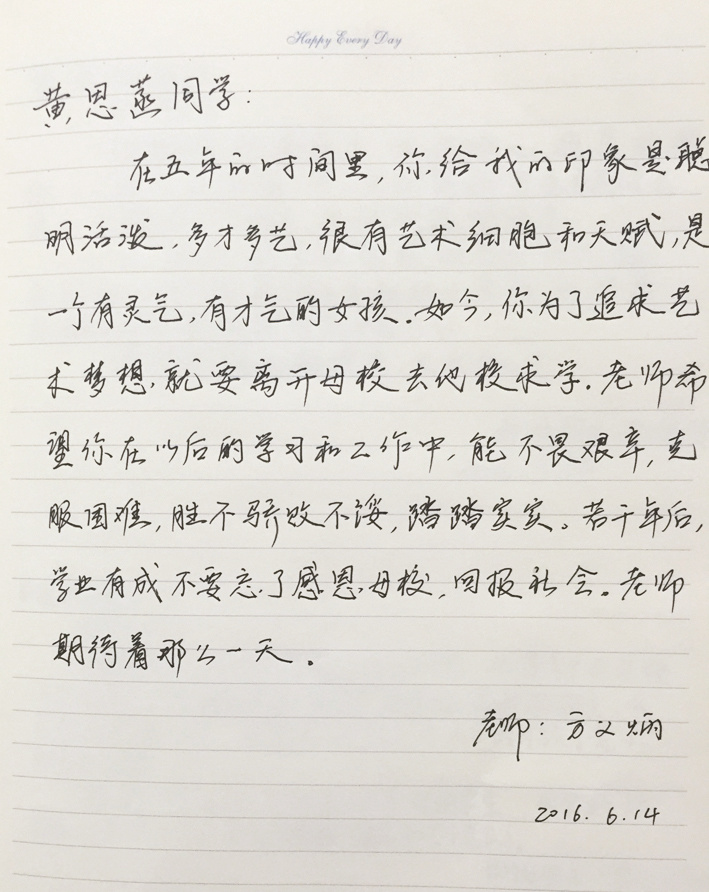 Happy Every Day
黄恩蒸同学：
在五年的时间里，你给我的印象是聪
明活泼，多才多艺，很有艺术细胞和天赋，是
一个有灵气，有才气的女孩。如今，你为了追求艺
术梦想，就要离开母校去他校求学。老师希
望你在以后的学习和工作中，能不畏艰辛，克
服困难，胜不骄败不馁，踏踏实实。若干年后，
学业有成不要忘了感恩母校，回报社会。老师
期待着那么一天。
老师：方义炳
2016.6.14